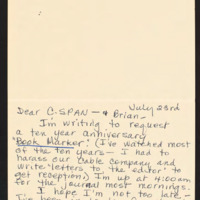 July 23rd
Dear C-SPAN — & Brian —
I'm writing to request
a ten year anniversary
"Book Marker". (I've watched most
of the ten years — I had to
harass our cable company and
write 'letters to the editor' to
get reception.) I'm up at 4:00am
for the Journal most mornings.
I hope I'm not too late —